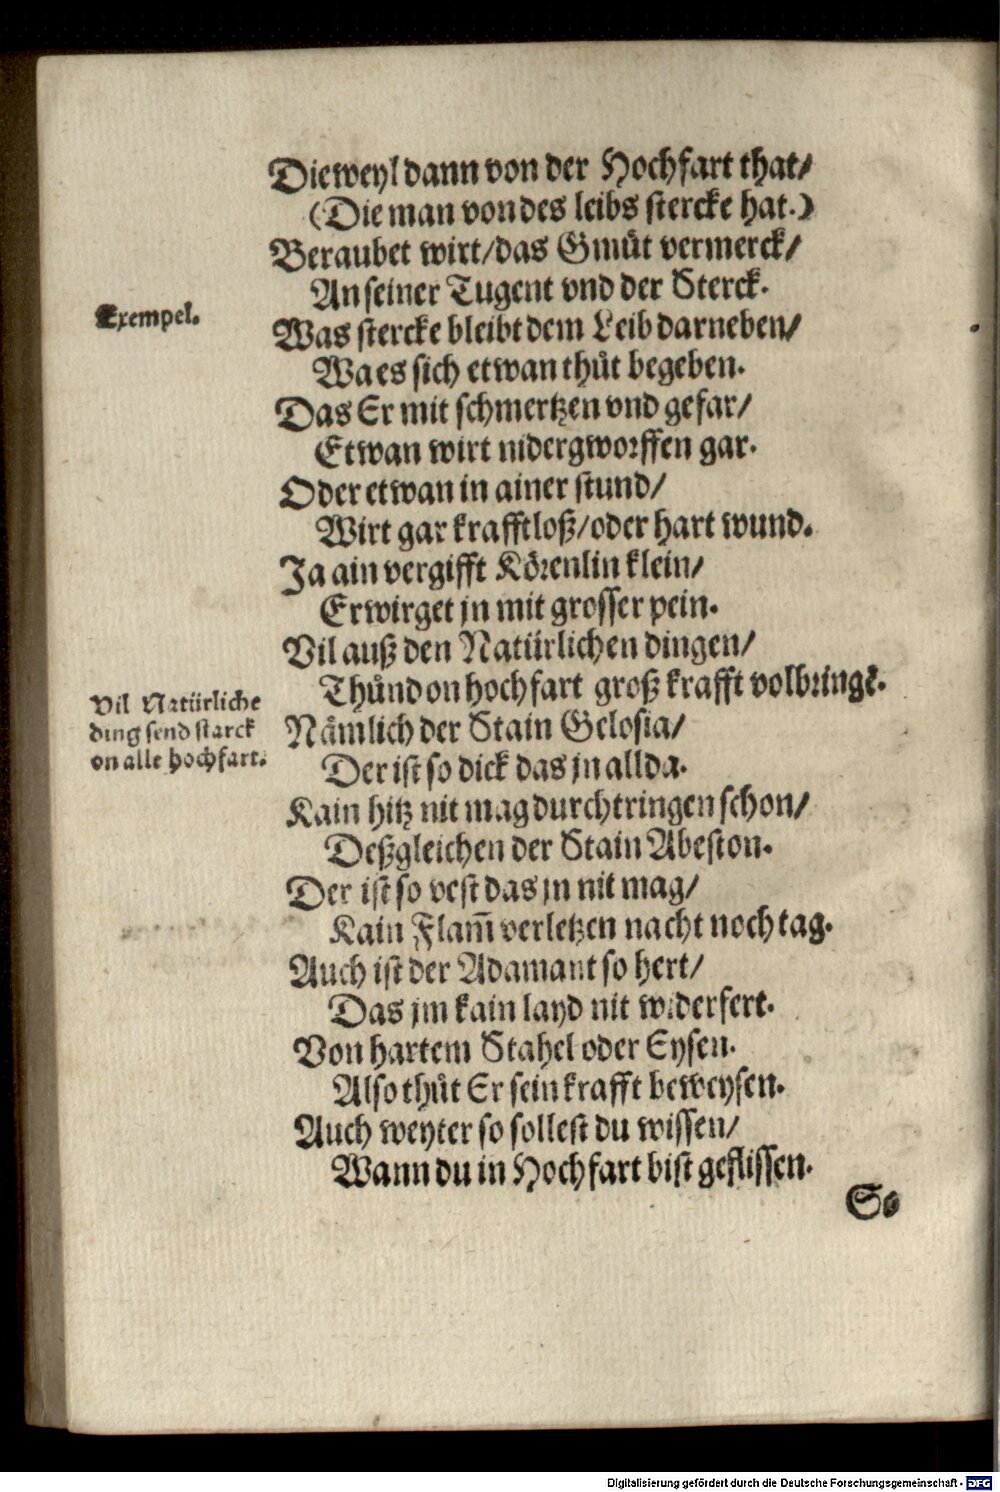 Dieweyl dann von der Hochfart that/
(Die man von des leibs stercke hat.)
Beraubet wirt/das Gmüt vermerck/
An seiner Tugent vnd der Sterck.
Exempel.
Was stercke bleibt dem Leib darneben/
Wa es sich etwan thůt begeben.
Das Er mit schmertzen vnd gefar/
Etwan wirt nidergworffen gar.
Oder etwan in ainer stund/
Wirt gar krafftloß/oder hart wund.
Ja ain vergifft Körenlin klein/
Erwirget jn mit grosser pein.
Vil auß den Natürlichen dingen/
Thůnd on hochfart groß krafft volbringē.
Vil Natürliche
ding send starck
on alle hochfart.
Nämlich der Stain Gelosia/
Der ist so dick das jn allda.
Kain hitz nit mag durchtringen schon/
Deßgleichen der Stain Abeston.
Der ist so vest das jn nit mag/
Kain Flam̄ verletzen nacht noch tag.
Auch ist der Adamant so hert/
Das jm kain layd nit widerfert.
Von hartem Stahel oder Eysen.
Also thůt Er sein krafft beweysen.
Auch weyter so sollest du wissen/
Wann du in Hochfart bist geflissen.
So
Digitalisierung gefördert durch die Deutsche Forschungsgemeinschaft - DFG